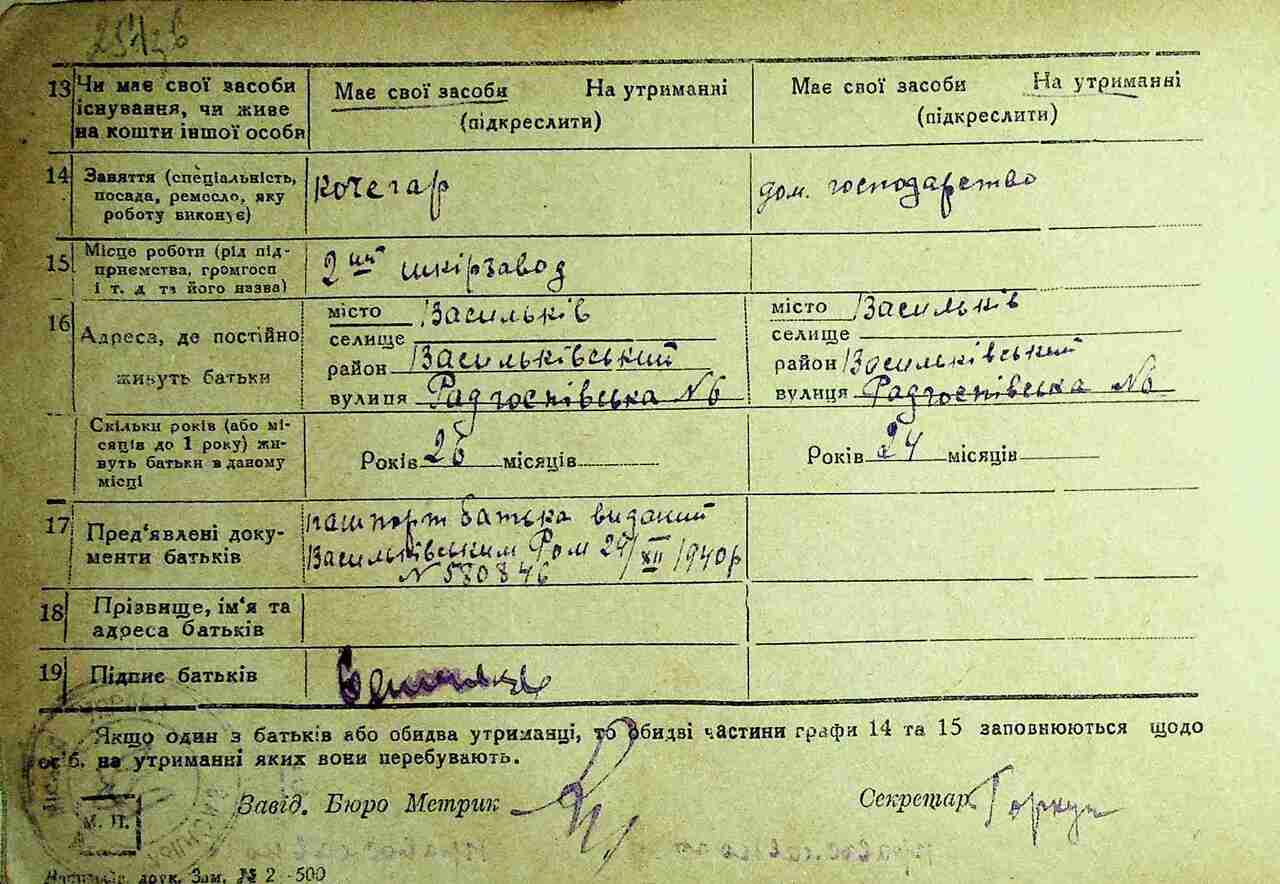 13 Чи має свої засоби існування, чи живе на кошти іншої особи
Має свої засоби На утриманні (підкреслити)
Має свої засоби На утриманні (підкреслити)
14 Заняття (спеціальність, посада, ремесло, яку роботу виконує)
кочегар
дом. господарство
15 Місце роботи (рід підприємства, громгосп і т. д та його назва)
2ий шкірзавод
16 Адреса, де постійно живуть батьки
місто Васильків
селище
район Васильківський
вулиця Радгоспівська №6
місто Васильків
селище
район Васильківський
вулиця Радгоспівська №6
Скільки років (або місяців до 1 року) живуть батьки в даному місці
Років 26 місяців
Років 24 місяців
17 Пред‘явлені документи батьків
пашпорт батька виданий
Васильківським Ром 24/XII 1940р
N 580846
18 Прізвище, ім‘я та адреса батьків
19 Підпис батьків
Якщо один з батьків або обидва утриманці, то обидві частини графи 14 та 15 заповнюються щодо
осіб, на утриманні яких вони перебувають.
Завід. Бюро Метрик
Секретар
М. П.
друк. Зам. № 2 -500